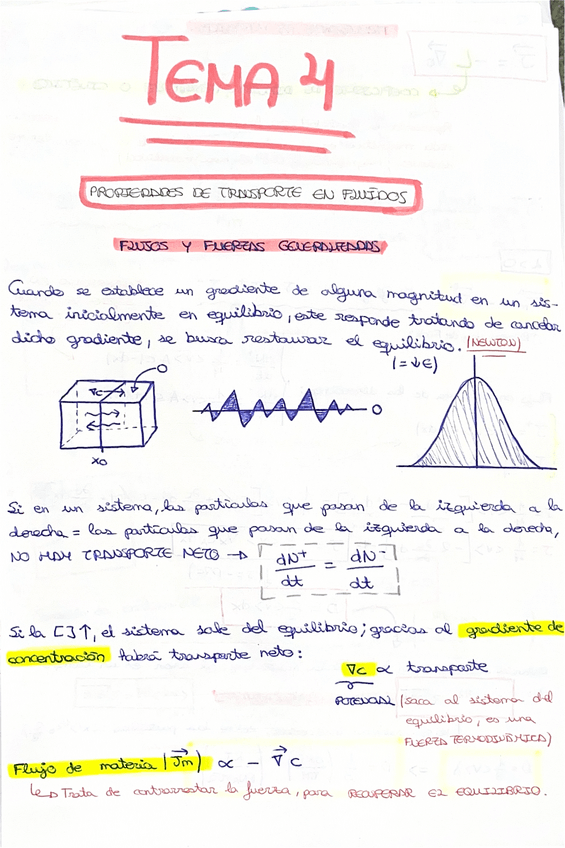 TEMA 4
PROPIEDADES DE TRANSPORTE EN FLUIDOS
FLUJOS Y FUERZAS GENERALIZADAS
Cuando se establece un gradiente de alguna magnitud en un sis-
tema inicialmente en equilibrio, este responde tratando de cancelar
dicho gradiente, se busca restaurar el equilibrio. (NEWTON)
(=↓E)
0
∇c →
0
x0
Si en un sistema, las partículas que pasan de la izquierda a la
derecha = las partículas que pasan de la izquierda a la derecha,
NO HAY TRANSPORTE NETO → dN⁺/dt = dN⁻/dt
Si la [ ]↑, el sistema sale del equilibrio; gracias al gradiente de
concentración habrá transporte neto:
∇c ∝ transporte
POTENCIAL (saca al sistema del
equilibrio, es una
FUERZA TERMODINÁMICA)
Flujo de materia (J⃗m) ∝ − ∇⃗c
↳ Trata de contrarrestar la fuerza, para RECUPERAR EL EQUILIBRIO.